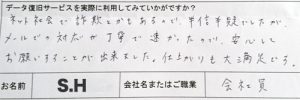 データ復旧サービスを実際に利用してみていかがですか？
ネット社会で詐欺とかもあるので、半信半疑でしたが、
メールでの対応が丁寧で速かったので、安心して
お願いすることが出来ました。仕上がりも大満足です。
お名前 S.H 会社名またはご職業 会社員